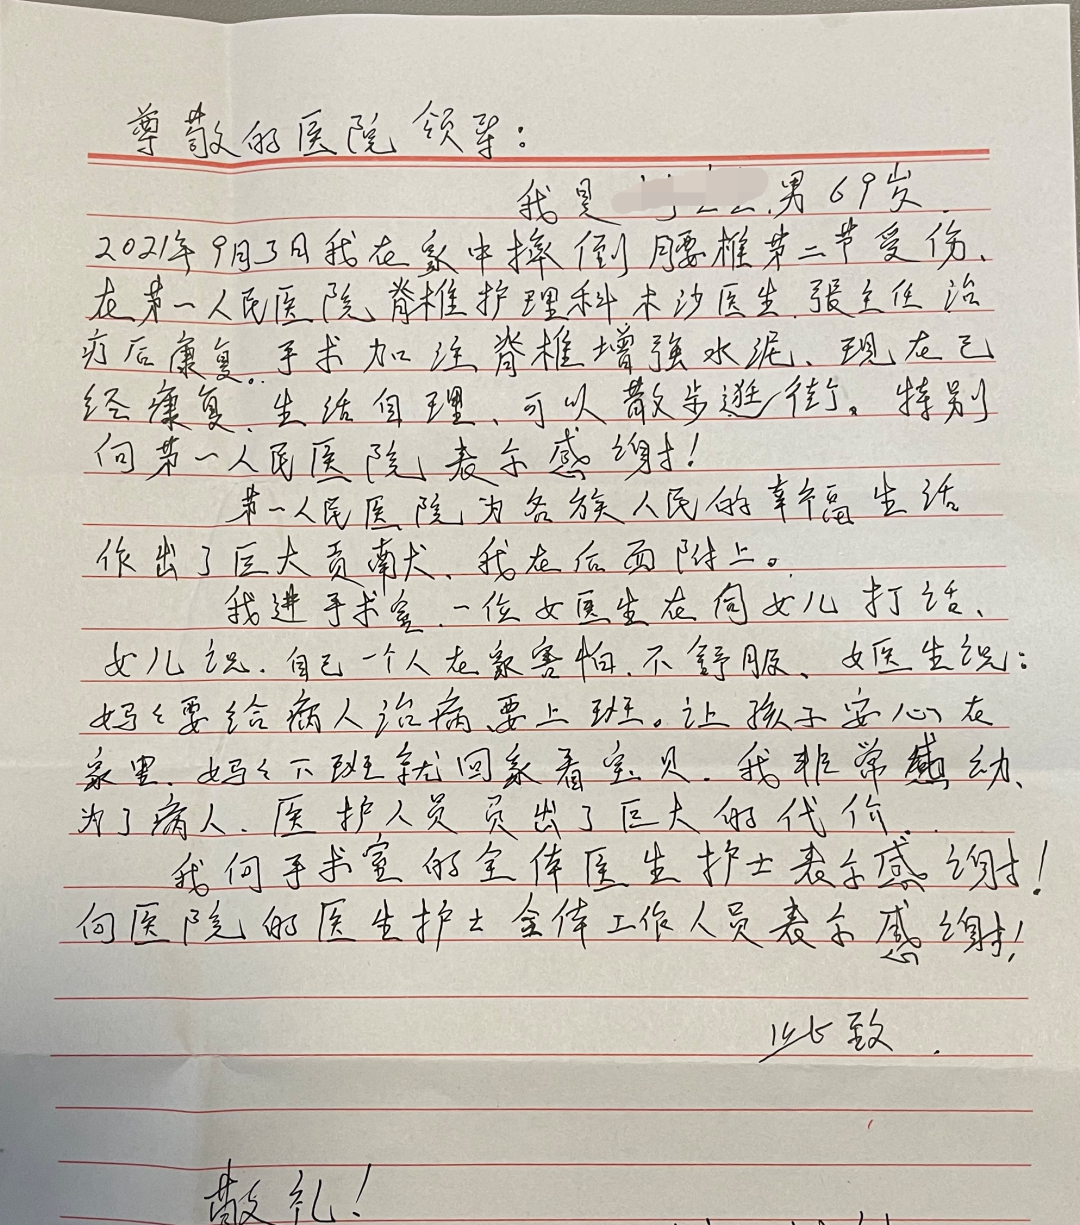 尊敬的医院领导：
我是 男 69岁
2021年9月3日我在家中摔倒腰椎第二节受伤、
在第一人民医院脊椎护理科木沙医生、张主任治
疗后康复。手术加注脊椎增强水泥、现在已
经康复、生活自理、可以散步逛街。特别
向第一人民医院表示感谢！
第一人民医院为各族人民的幸福生活
作出了巨大贡献、我在后面附上。
我进手术室、一位女医生在向女儿打话、
女儿说、自己一个人在家害怕、不舒服、女医生说：
妈々要给病人治病要上班。让孩子安心在
家里、妈々下班就回家看宝贝、我非常感动、
为了病人、医护人员员出了巨大的代价、
我向手术室的全体医生护士表示感谢！
向医院的医生护士全体工作人员表示感谢！
此致
敬礼！